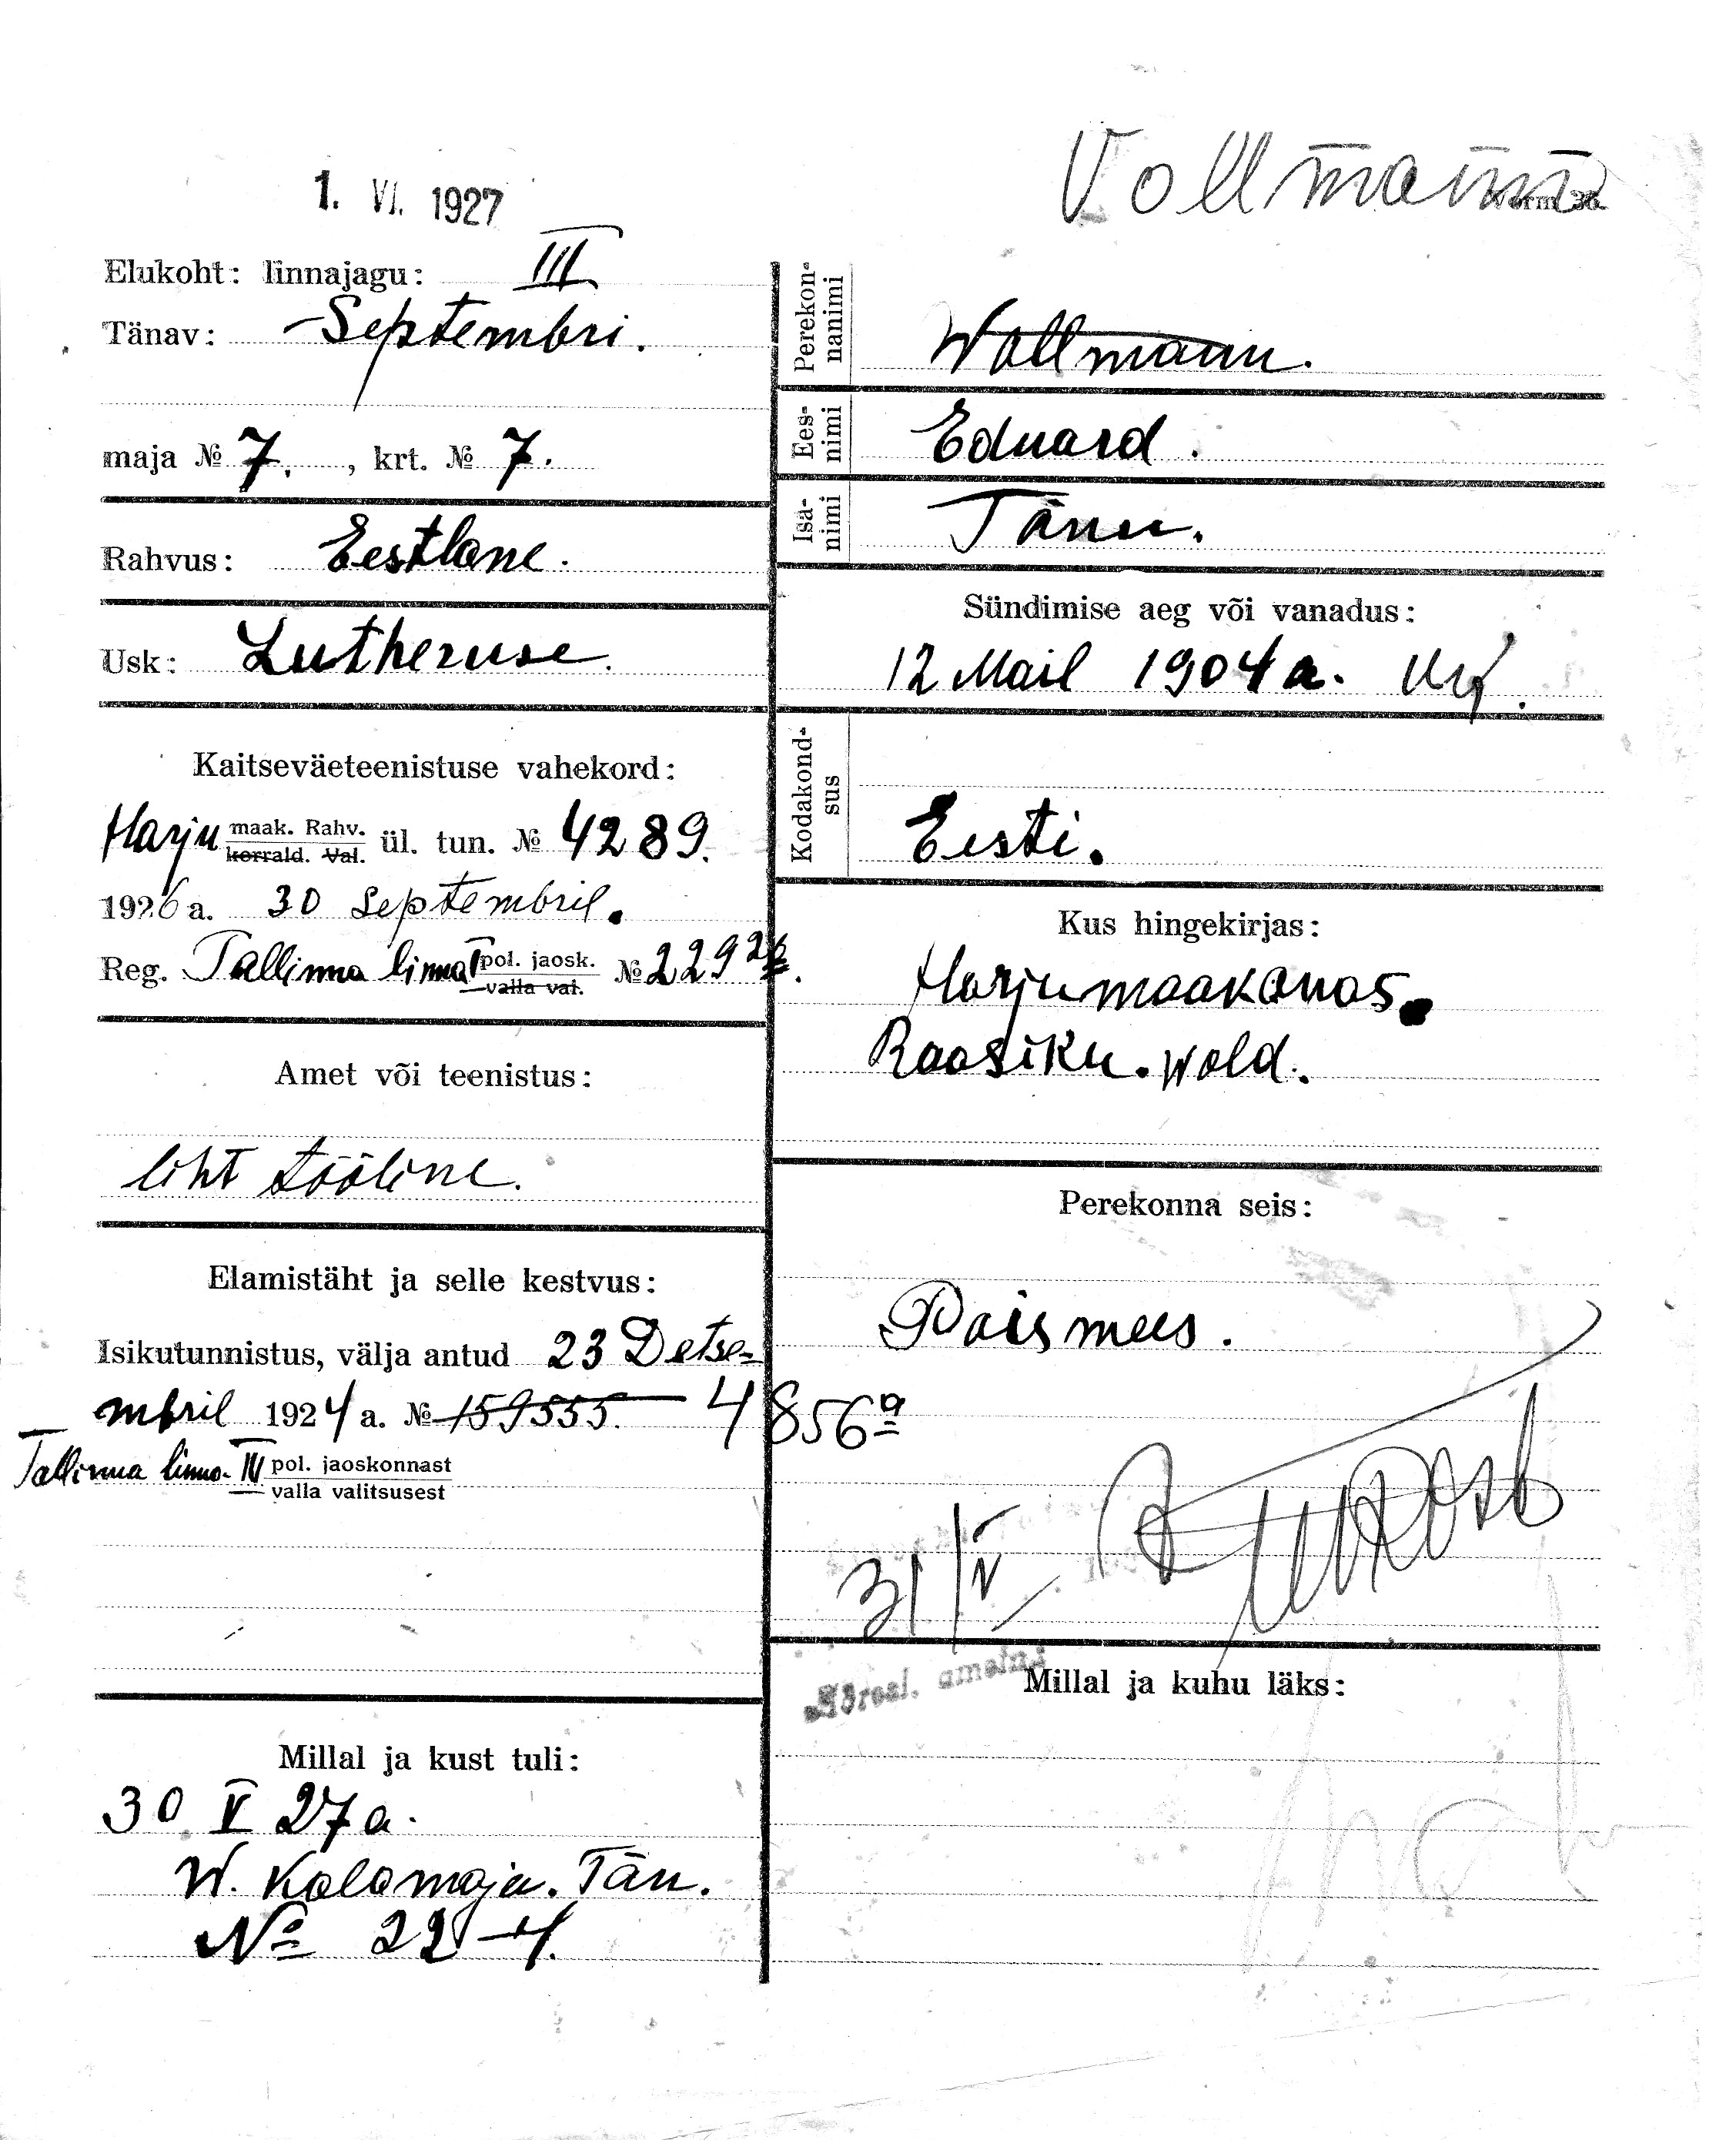 1. VI. 1927
Vollmann
Vorm 36.
Elukoht: linnajagu: III
Tänav: Septembri.
maja № 7. , krt. № 7.
Rahvus: Eestlane.
Usk: Lutheruse.
Kaitseväeteenistuse vahekord:
Harju maak. Rahv. korrald. Val. ül. tun. № 4289.
1926 a. 30 Septembril.
Reg. Tallinna linna I pol. jaosk. valla val. № 22926.
Amet või teenistus:
liht tööline.
Elamistäht ja selle kestvus:
Isikutunnistus, välja antud 23 Detse-
mbril 1924 a. № 159555. 4856a
Tallinna linna. IV pol. jaoskonnast
valla valitsusest
Millal ja kust tuli:
30. V 27 a.
W. Kalamaja. Tän.
№ 22-4.
Perekon-
nanimi
Wollmann.
Ees-
nimi
Eduard.
Isa-
nimi
Tänu.
Sündimise aeg või vanadus:
12 Mail 1904 a.
Kodakond-
sus
Eesti.
Kus hingekirjas:
Harjumaakonas.
Raasiku. wald.
Perekonna seis:
Poismees.
31/V
Adressl. ametni
Millal ja kuhu läks: